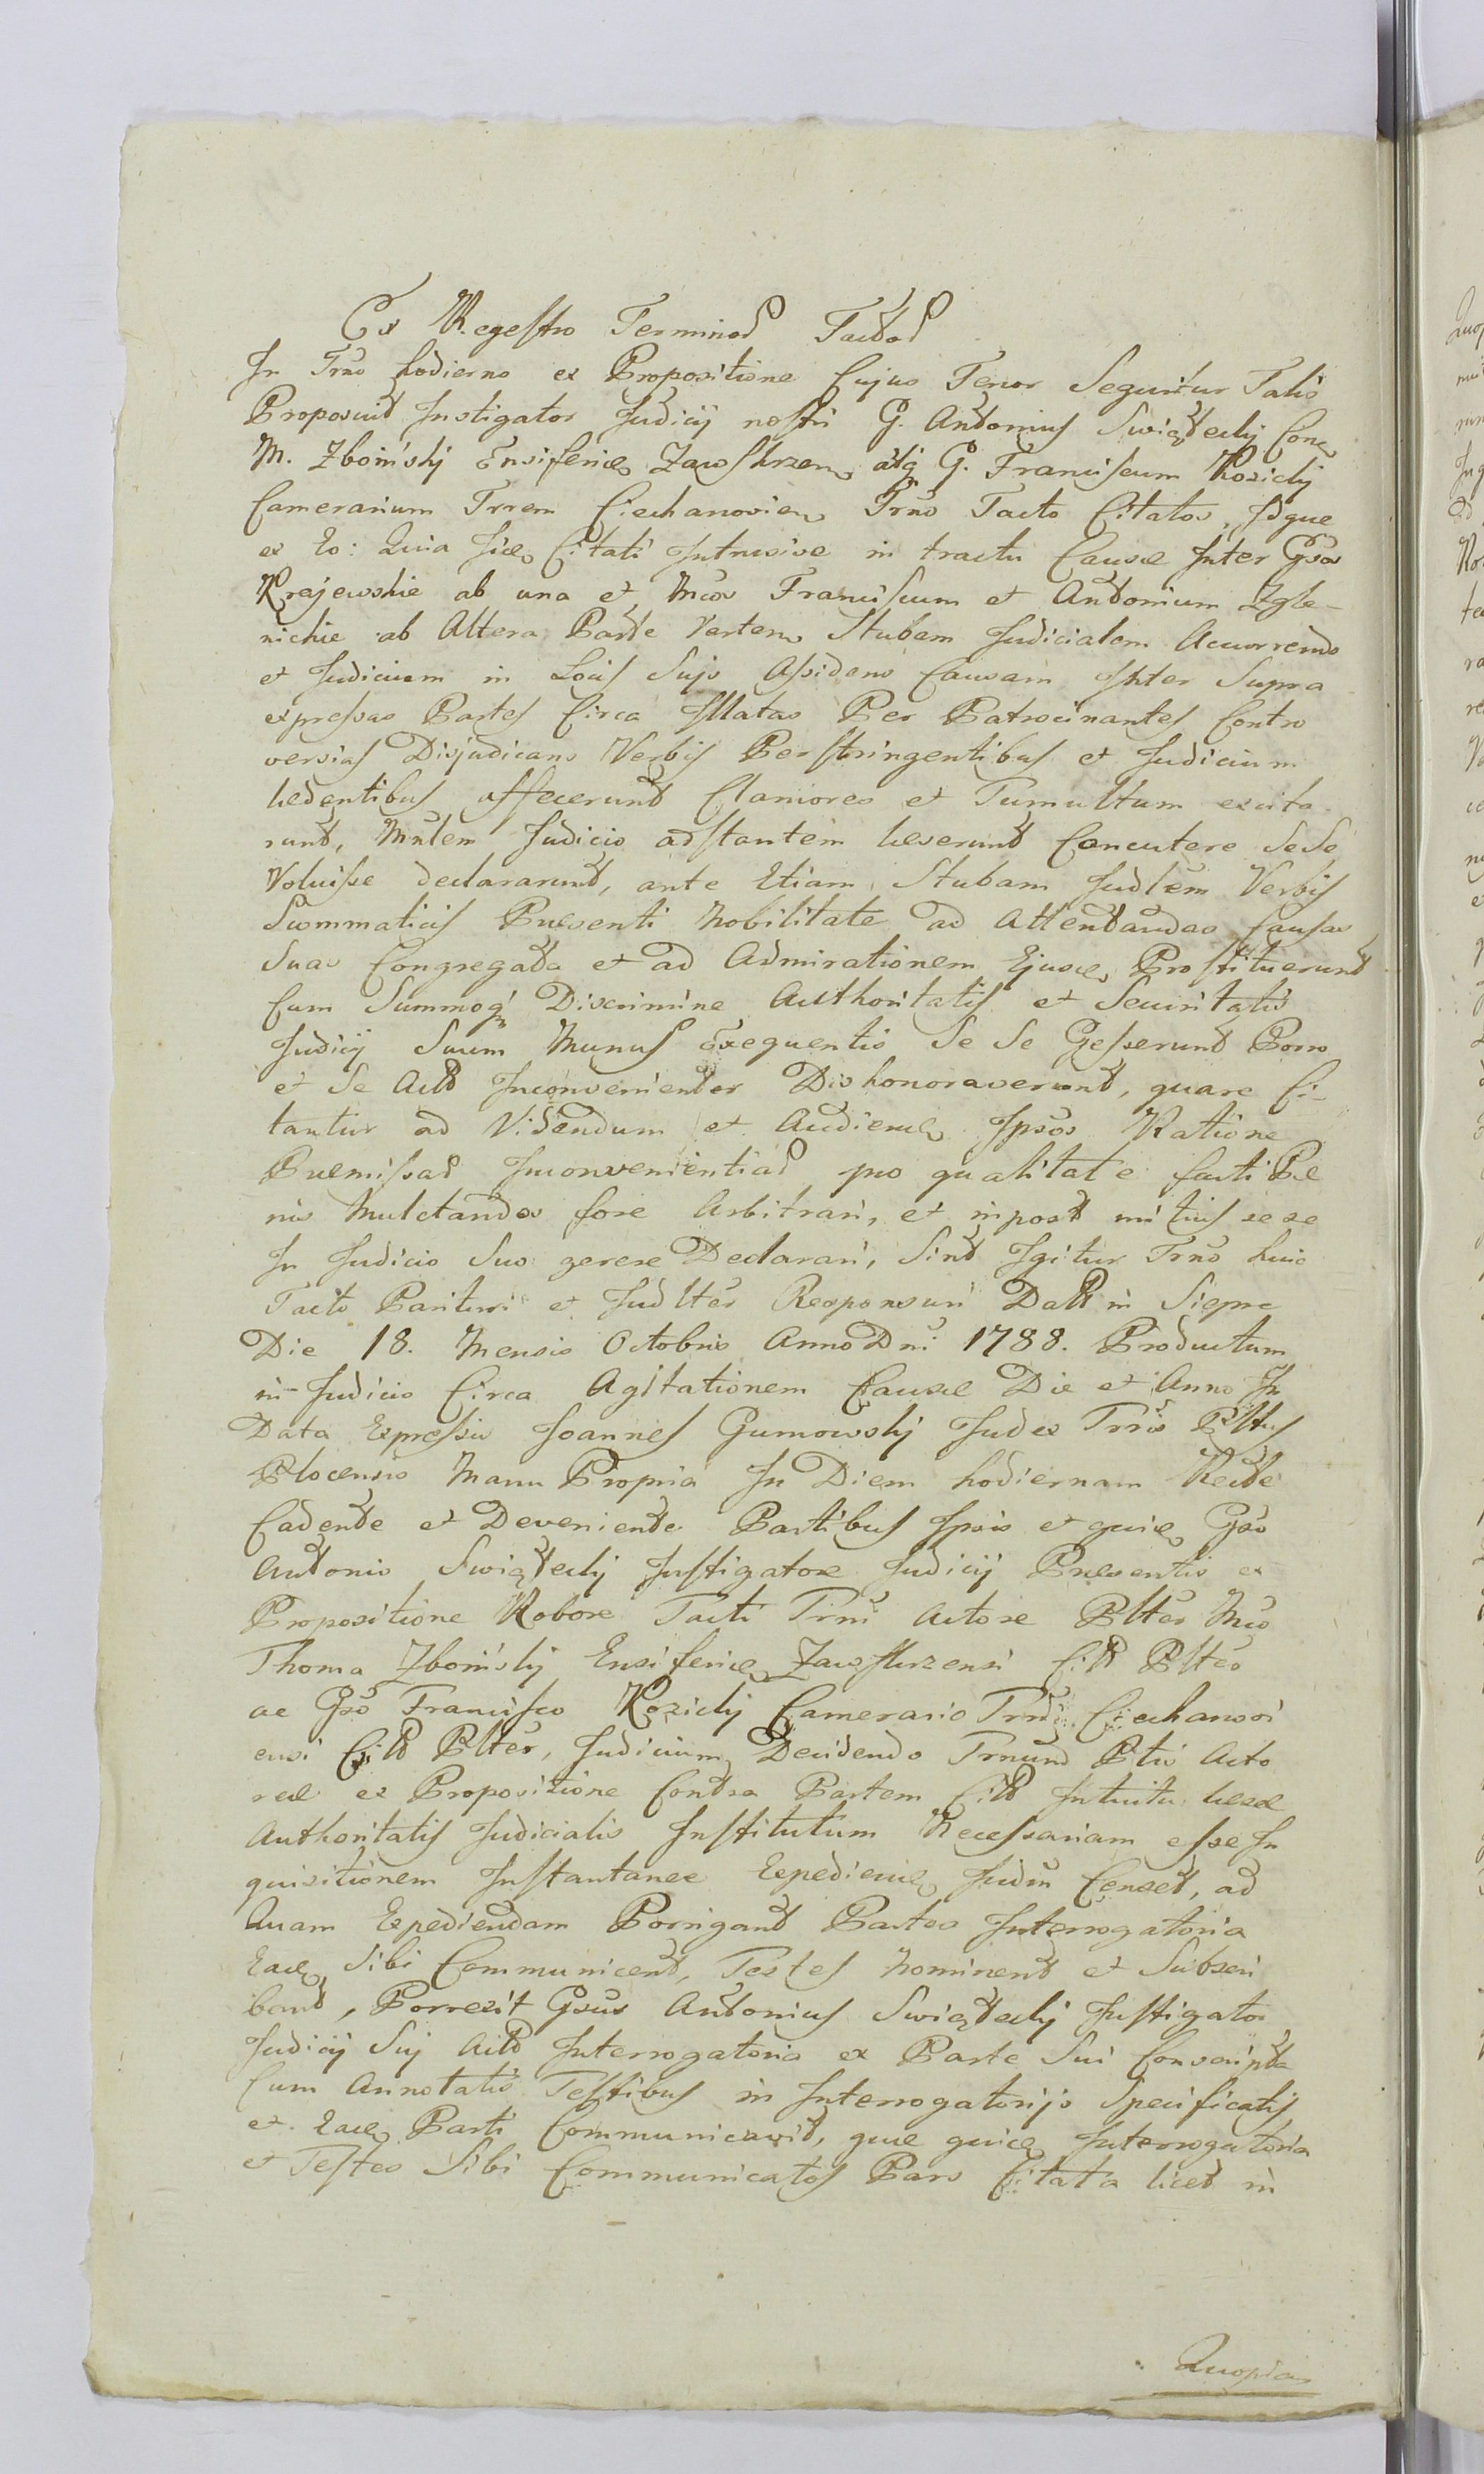 Ex Regestro Terminor Tactor
In Trno hodierno ex Propositione Cujus Tenor Sequitur Talis
Proposuit Instigator Judicij nostri G. Antonius Swiątecky Conc
M. Zboinsky Ensiferice Zawskrzen atq G. Franciscum Kozicky
Camerarium Trrem Ciechanovien Trno Tacto Citatos, Idque
ex Eo: Quia Jidem Citati Intrusive in tractu Causæ Inter Gsos
Krajewskie ab una et Mcos Franciscum et Antonium Zgle-
nickie ab Altera Parte Verten Stubam Judicialem Accurrendo
et Judicium in Locis Sujs Assidens Causam Inter Supra
expressas Partes Circa Illatas Per Patrocinantes Contro
versias Disjudicans Verbis Perstringentibus et Judicium
ledentibus affecerunt Clamores et Tumultum excita
runt, Mnlem Judicio adstantem leserunt Concutere SeSe
Voluisse declararunt, ante Etiam Stubam Judlem Verbis
Summaticis Præsenti Nobilitate ad Attentandas Causas
Suas Congregata et ad Admirationem Ejusce Prostituerunt
Cum Summoq Discrimine Authoritatis et Securitatis
Judicij Suum Munus Exequentis Se Se Gesserunt Porro
et Se Actt Inconvenienter Dishonoraverunt, quare Ci-
tantur ad Videndum et Audience Ipsos Ratione
Præmissar Inconvenientiar pro qualitate facti Pæ
nis Mulctandos fore Arbitrari, et inpost mitius sese
In Judicio Suo gerere Declarari, Sint Igitur Trno huic
Tacto Parituri et Judlter Responsuri Datt in Sierpc
Die 18. Mensis Octobris Anno Dni 1788. Productum
in Judicio Circa Agitationem Causæ Die et Anno In
Data Expressis Joannes Gumowsky Judex Trris Pltus
Plocensis Manu Propria In Diem hodiernam Recte
Cadente et Deveniente Partibus Ipsis et quice Gso
Antonio Swiątecky Instigatore Judicij Præsentis ex
Propositione Robore Tacti Trni Actore Plter Mco
Thoma Zboinsky Ensiferice Zawskrzensi Citt Plter
ac Gso Francisco Kozicky Camerario Trri Ciechanovi
ensi Citt Plter, Judicium Decidendo Trnum Ptis Acto
reæ ex Propositione Contra Partem Citt Intuitu lesæ
Authoritatis Judicialis Institutum Necessariam esse In
quisitionem Instantanee Expedience Judm Censet, ad
Quam Expediendam Porrigant Partes Interrogatoria
Eace Sibi Communicent, Testes Nominent et Subscri
bant, Porrexit Gsus Antonius Swiątecky Instigator
Judicij Sui Actt Interrogatoria ex Parte Sui Conscripta
Cum Annotatis Testibus in Interrogatorijs Specificatis
et Eace Parti Communicavit, quæ quice Interrogatoria
et Testes Sibi Communicatos Pars Citata licet in
Quopiam